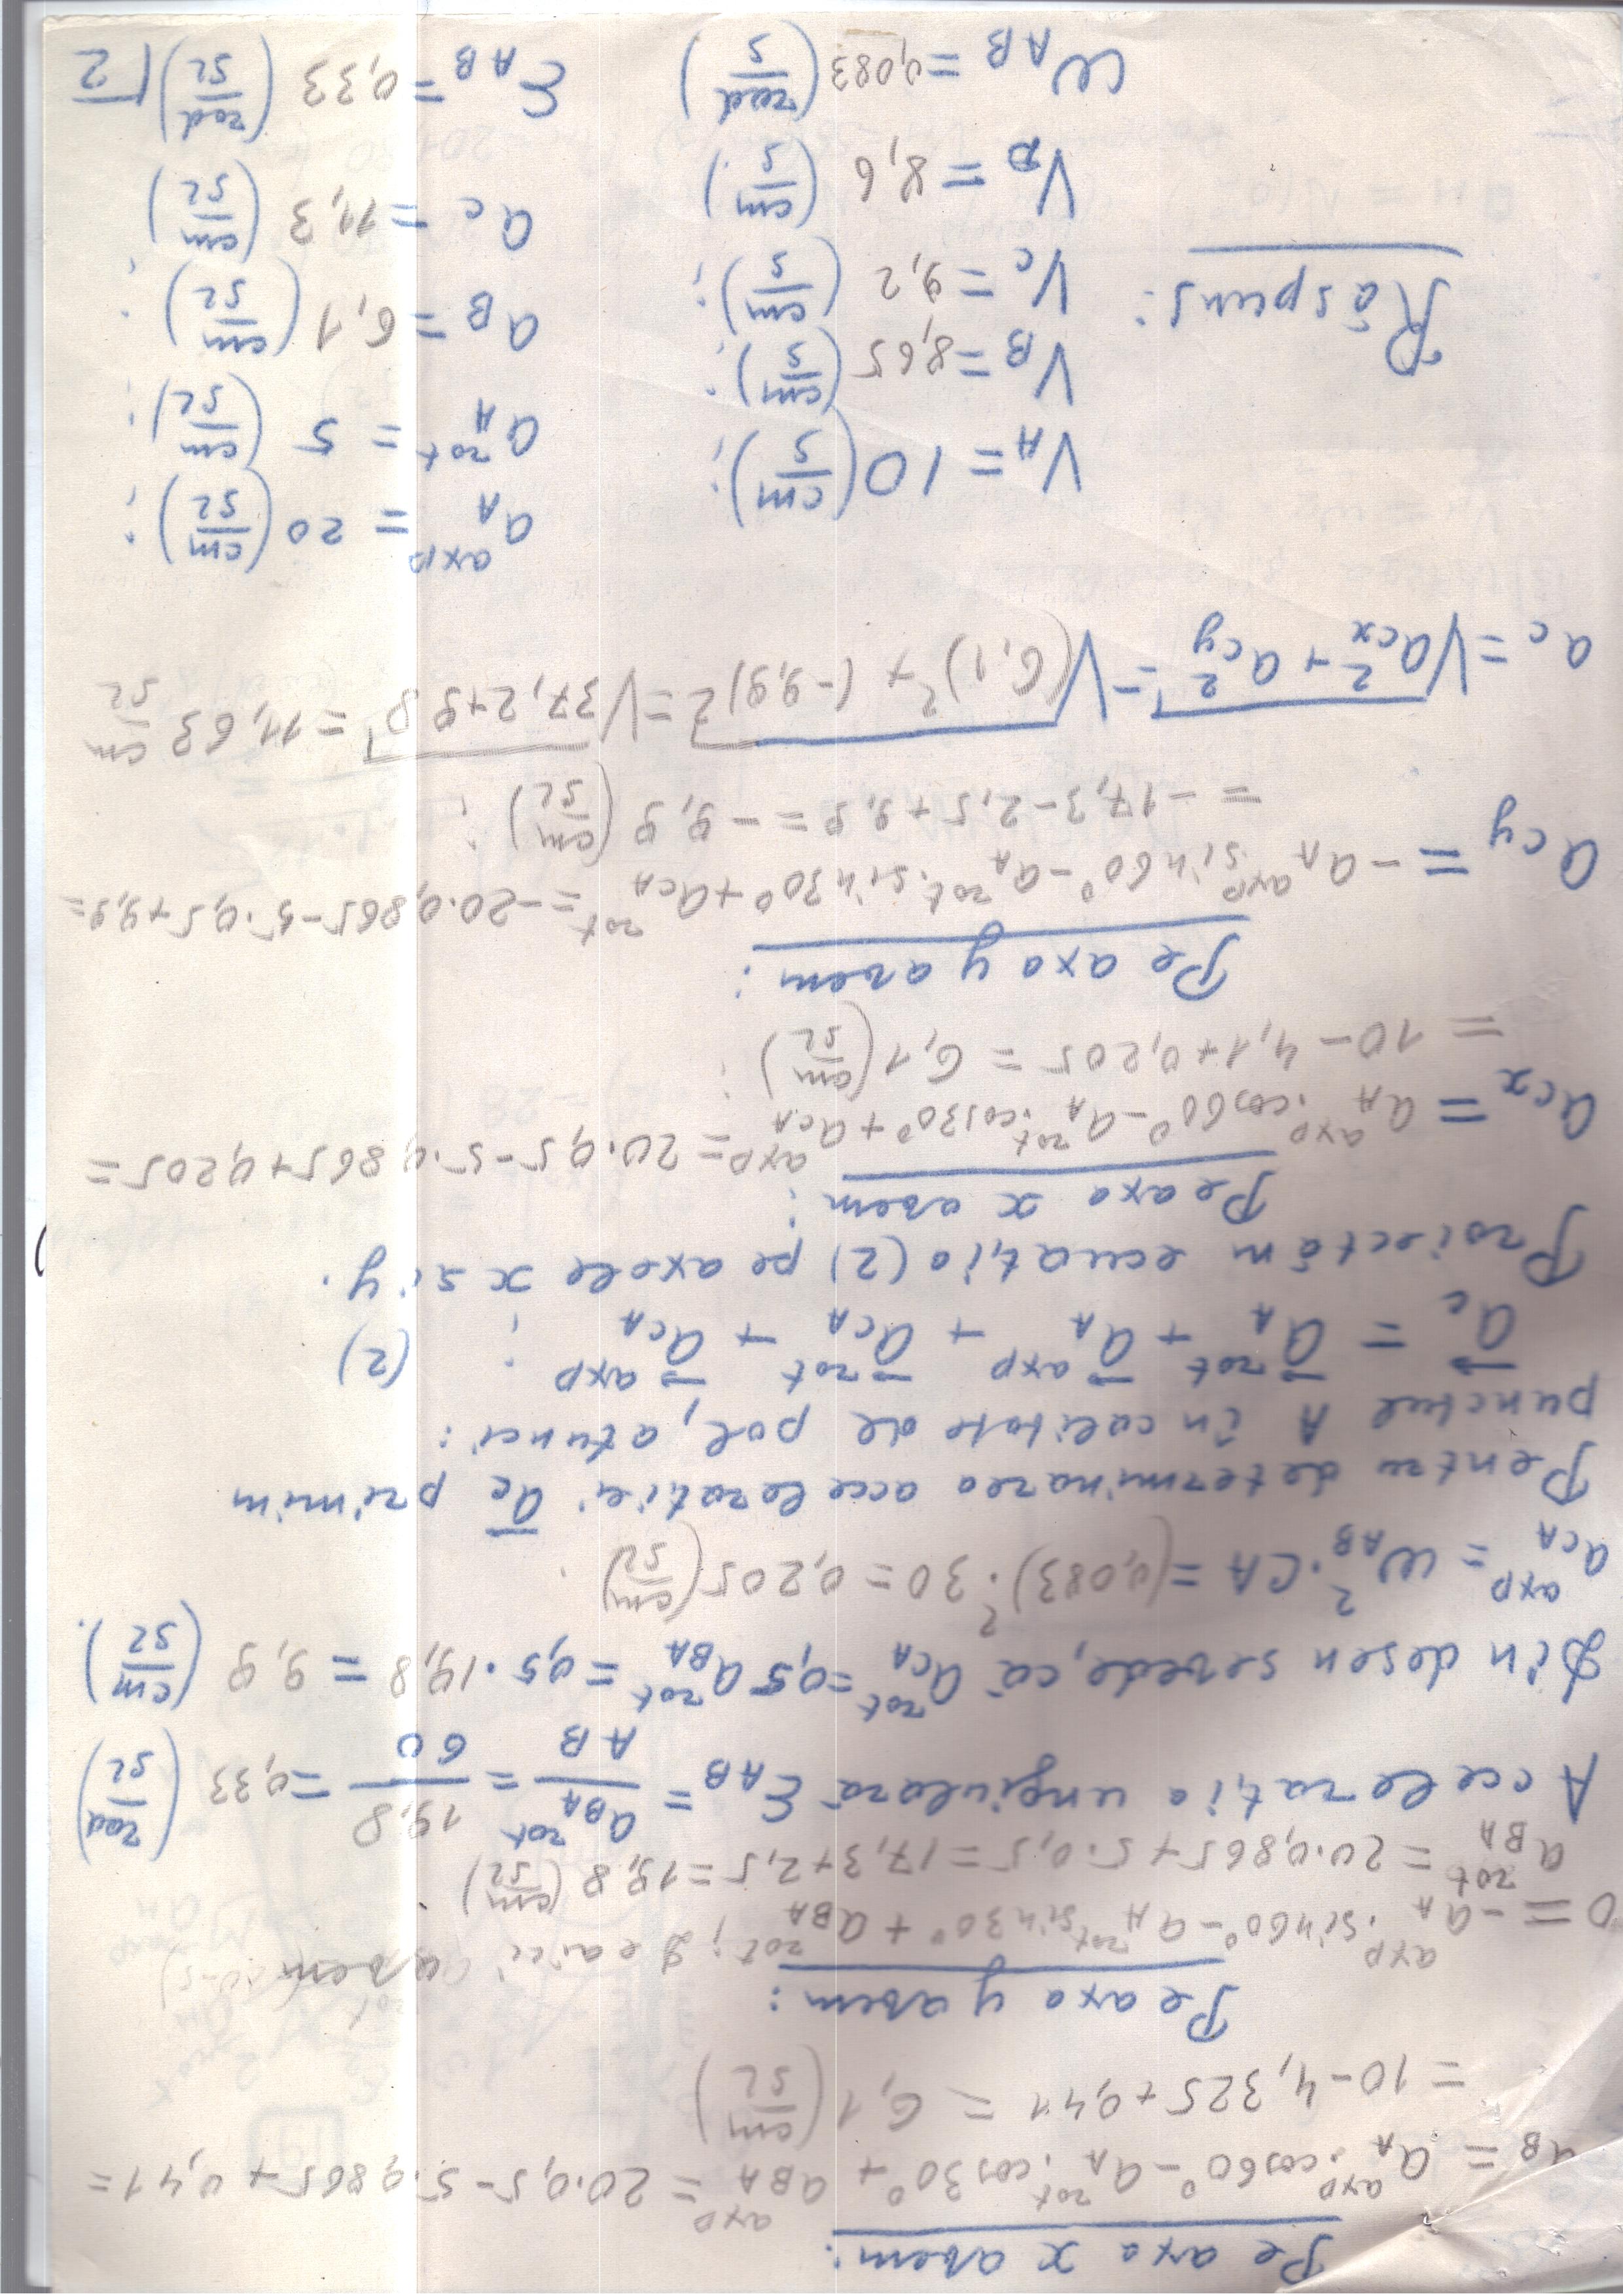 Pe axa x avem:
aB = aA^axp · cos60° − aA^rot · cos30° + aBA^axp = 20·0,5 − 5·0,865 + 0,41 =
= 10 − 4,325 + 0,41 = 6,1 (cm/s²)
Pe axa y avem:
0 = −aA^axp · sin60° − aA^rot sin30° + aBA^rot; De aici avem
aBA^rot = 20·0,865 + 5·0,5 = 17,3 + 2,5 = 19,8 (cm/s²).
Accelerația unghiulară εAB = aBA^rot / AB = 19,8 / 60 = 0,33 (rad/s²)
Din desen se vede, că aCA^rot = 0,5 aBA^rot = 0,5 · 19,8 = 9,9 (cm/s²).
aCA^axp = ωAB² · CA = (0,083)² · 30 = 0,205 (cm/s²).
Pentru determinarea accelerației aC primim
punctul A în calitate de pol, atunci:
aC = aA^rot + aA^axp + aCA^rot + aCA^axp ; (2)
Proiectăm ecuația (2) pe axele x și y.
Pe axa x avem:
aCx = aA^axp · cos60° − aA^rot · cos30° + aCA^axp = 20·0,5 − 5·0,865 + 0,205 =
= 10 − 4,1 + 0,205 = 6,1 (cm/s²);
Pe axa y avem:
aCy = −aA^axp · sin60° − aA^rot · sin30° + aCA^rot = −20·0,865 − 5·0,5 + 9,9 =
= −17,3 − 2,5 + 9,9 = −9,9 (cm/s²);
aC = √(aCx² + aCy²) = √((6,1)² + (−9,9)²) = √(37,2 + 98) = 11,63 cm/s²
aA^axp = 20 (cm/s²);
VA = 10 (cm/s);
aA^rot = 5 (cm/s²);
VB = 8,65 (cm/s);
Răspuns:
aB = 6,1 (cm/s²);
VC = 9,2 (cm/s);
aC = 11,3 (cm/s²)
VD = 8,6 (cm/s)
εAB = 0,33 (rad/s²)
ωAB = 0,083 (rad/s)
12